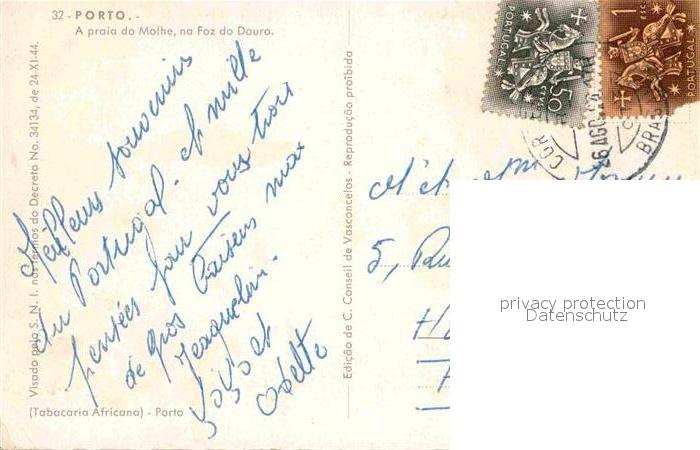 32 - PORTO. -
A praia do Molhe, na Foz do Douro.
Visado pelo S. N. I. nos termos do Decreto No. 34134, de 24-XI-44.
Meilleurs souvenirs
du Portugal. et mille
pensées pour vous trois
de gros baisers
et
Odette
(Tabacaria Africana) - Porto
Edição de C. Conseil de Vasconcelos - Reprodução proibida
PORTUGAL
50
CTVS
1
ESC
PORTUGAL
AGO
BRA
5, Ru
privacy protection
Datenschutz